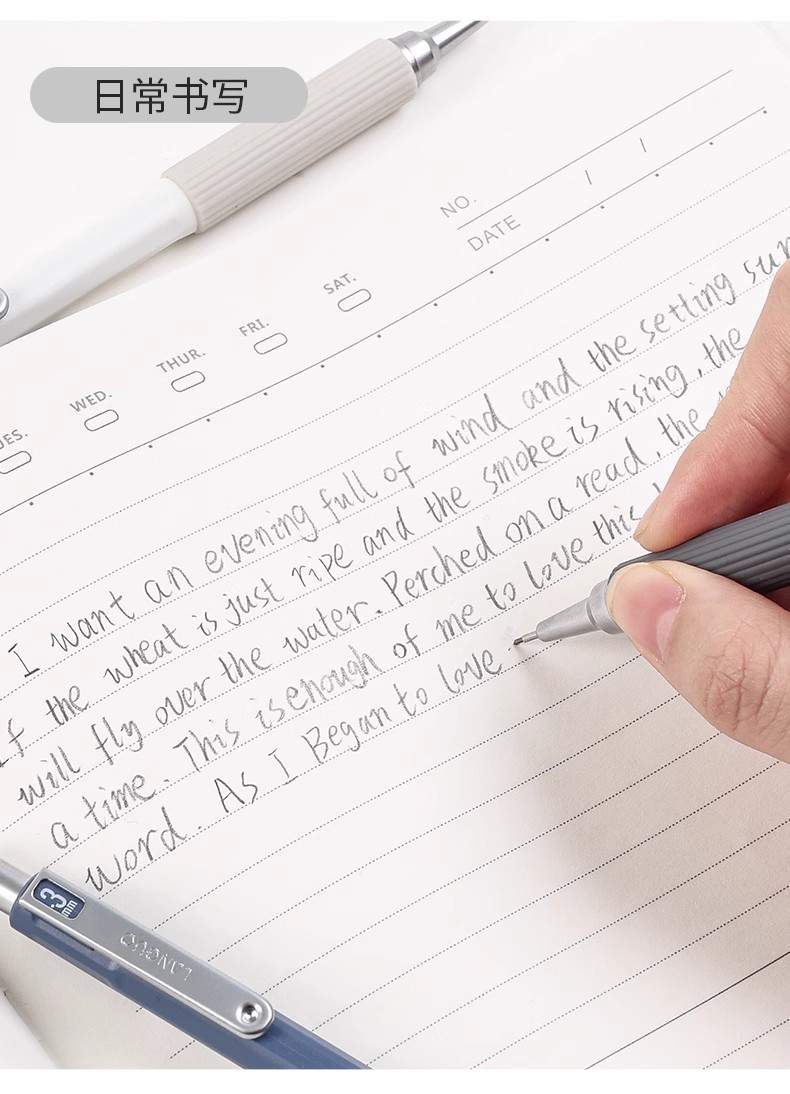 日常书写
NO.
DATE / /
WED. THUR. FRI. SAT.
I want an evening full of wind and the setting sun
the wheat is just ripe and the smoke is rising, the
will fly over the water. Perched on a read, the
a time. This is enough of me to love this
word. As I Began to love
.3 mm